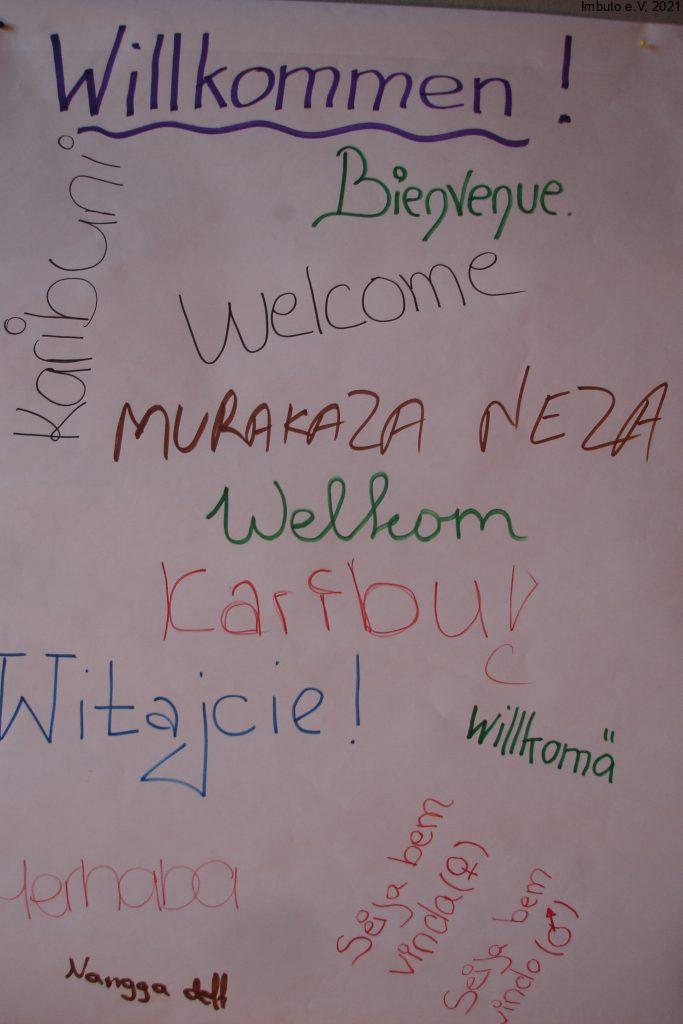 Imbuto e.V, 2021
Willkommen!
Karibuni
Bienvenue.
Welcome
MURAKAZA NEZA
Welkom
Witajcie!
Willkomä
Merhaba
Seija bem
vinda(♀)
Seija bem
vindo(♂)
Nangga deff